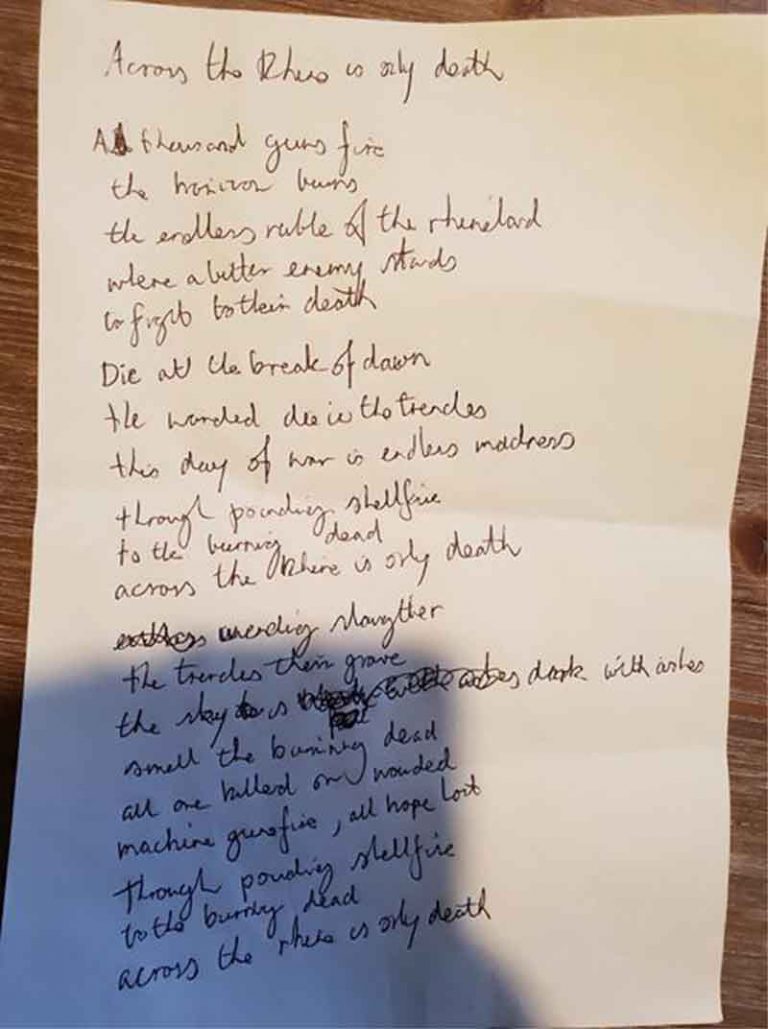 Across the Rhine is only death
A thousand guns fire
the horizon burns
the endless ruble of the rhineland
where a bitter enemy stands
to fight to their death
Die at the break of dawn
the wounded die in the trenches
this day of war is endless madness
through pounding shellfire
to the burning dead
across the Rhine is only death
unending slaugther
the trenches their grave
the sky is dark with ashes
smell the burning dead
all are killed or wouded
machine gunsfire, all hope lost
through pounding shellfire
to the burning dead
across the rhine is only death